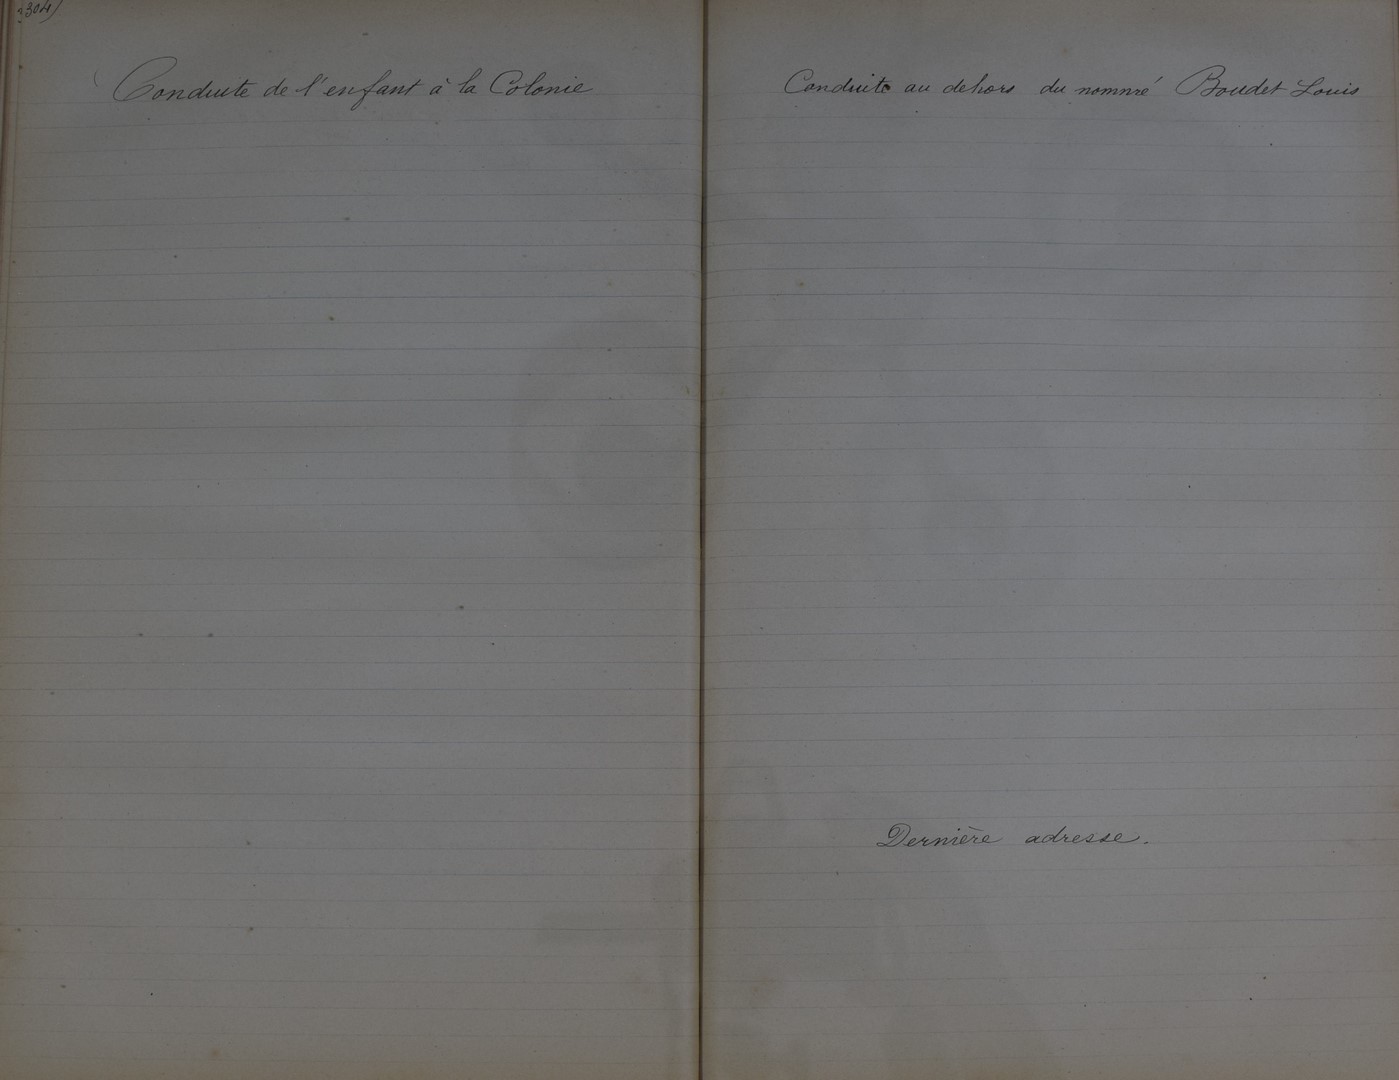 Conduite de l'enfant à la Colonie
Conduite au dehors du nommé Boudet Louis
Dernière adresse.